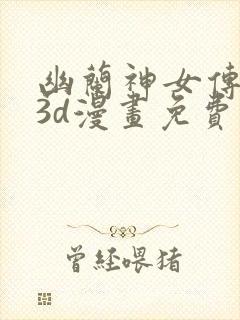 幽蘭神女傳
3d漫畫免費
曾經喂猪